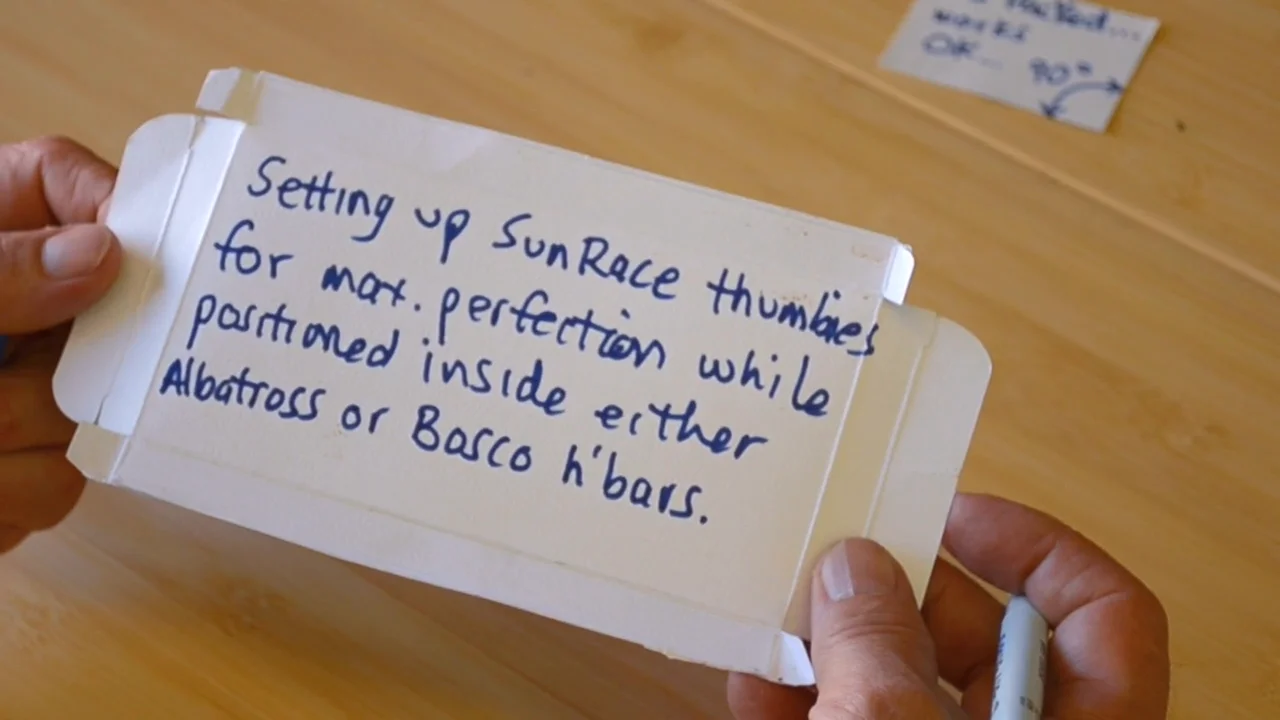 works
OK... 90°
Setting up SunRace thumbies
for max. perfection while
positioned inside either
Albatross or Bosco h'bars.